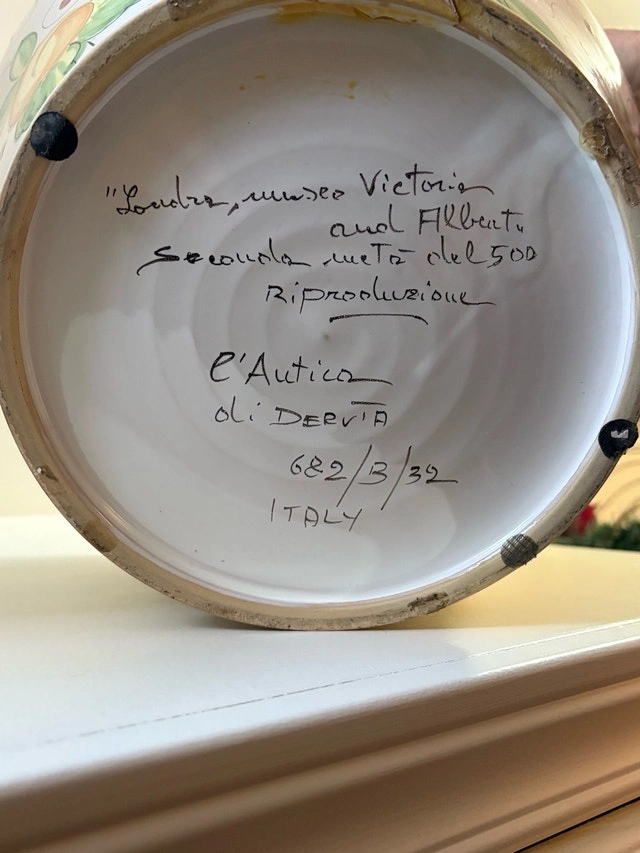 "Londra, museo Victoria
and Albert.
Seconda metà del 500
Riproduzione
l'Antica
di DERUTA
682/B/32
ITALY